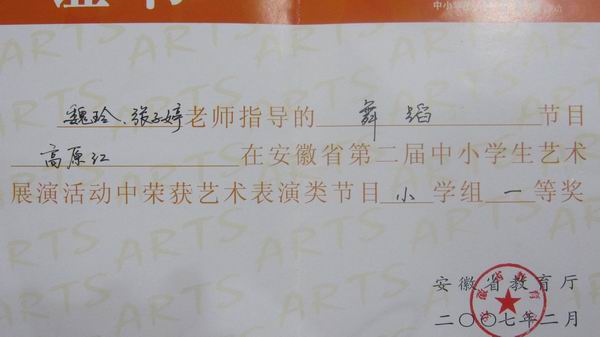 证书
魏玲、张子婷老师指导的 舞蹈 节目
高原红 在安徽省第二届中小学生艺术
展演活动中荣获艺术表演类节目 小 学组 一 等奖
安徽省教育厅
二〇〇七年二月
ARTS